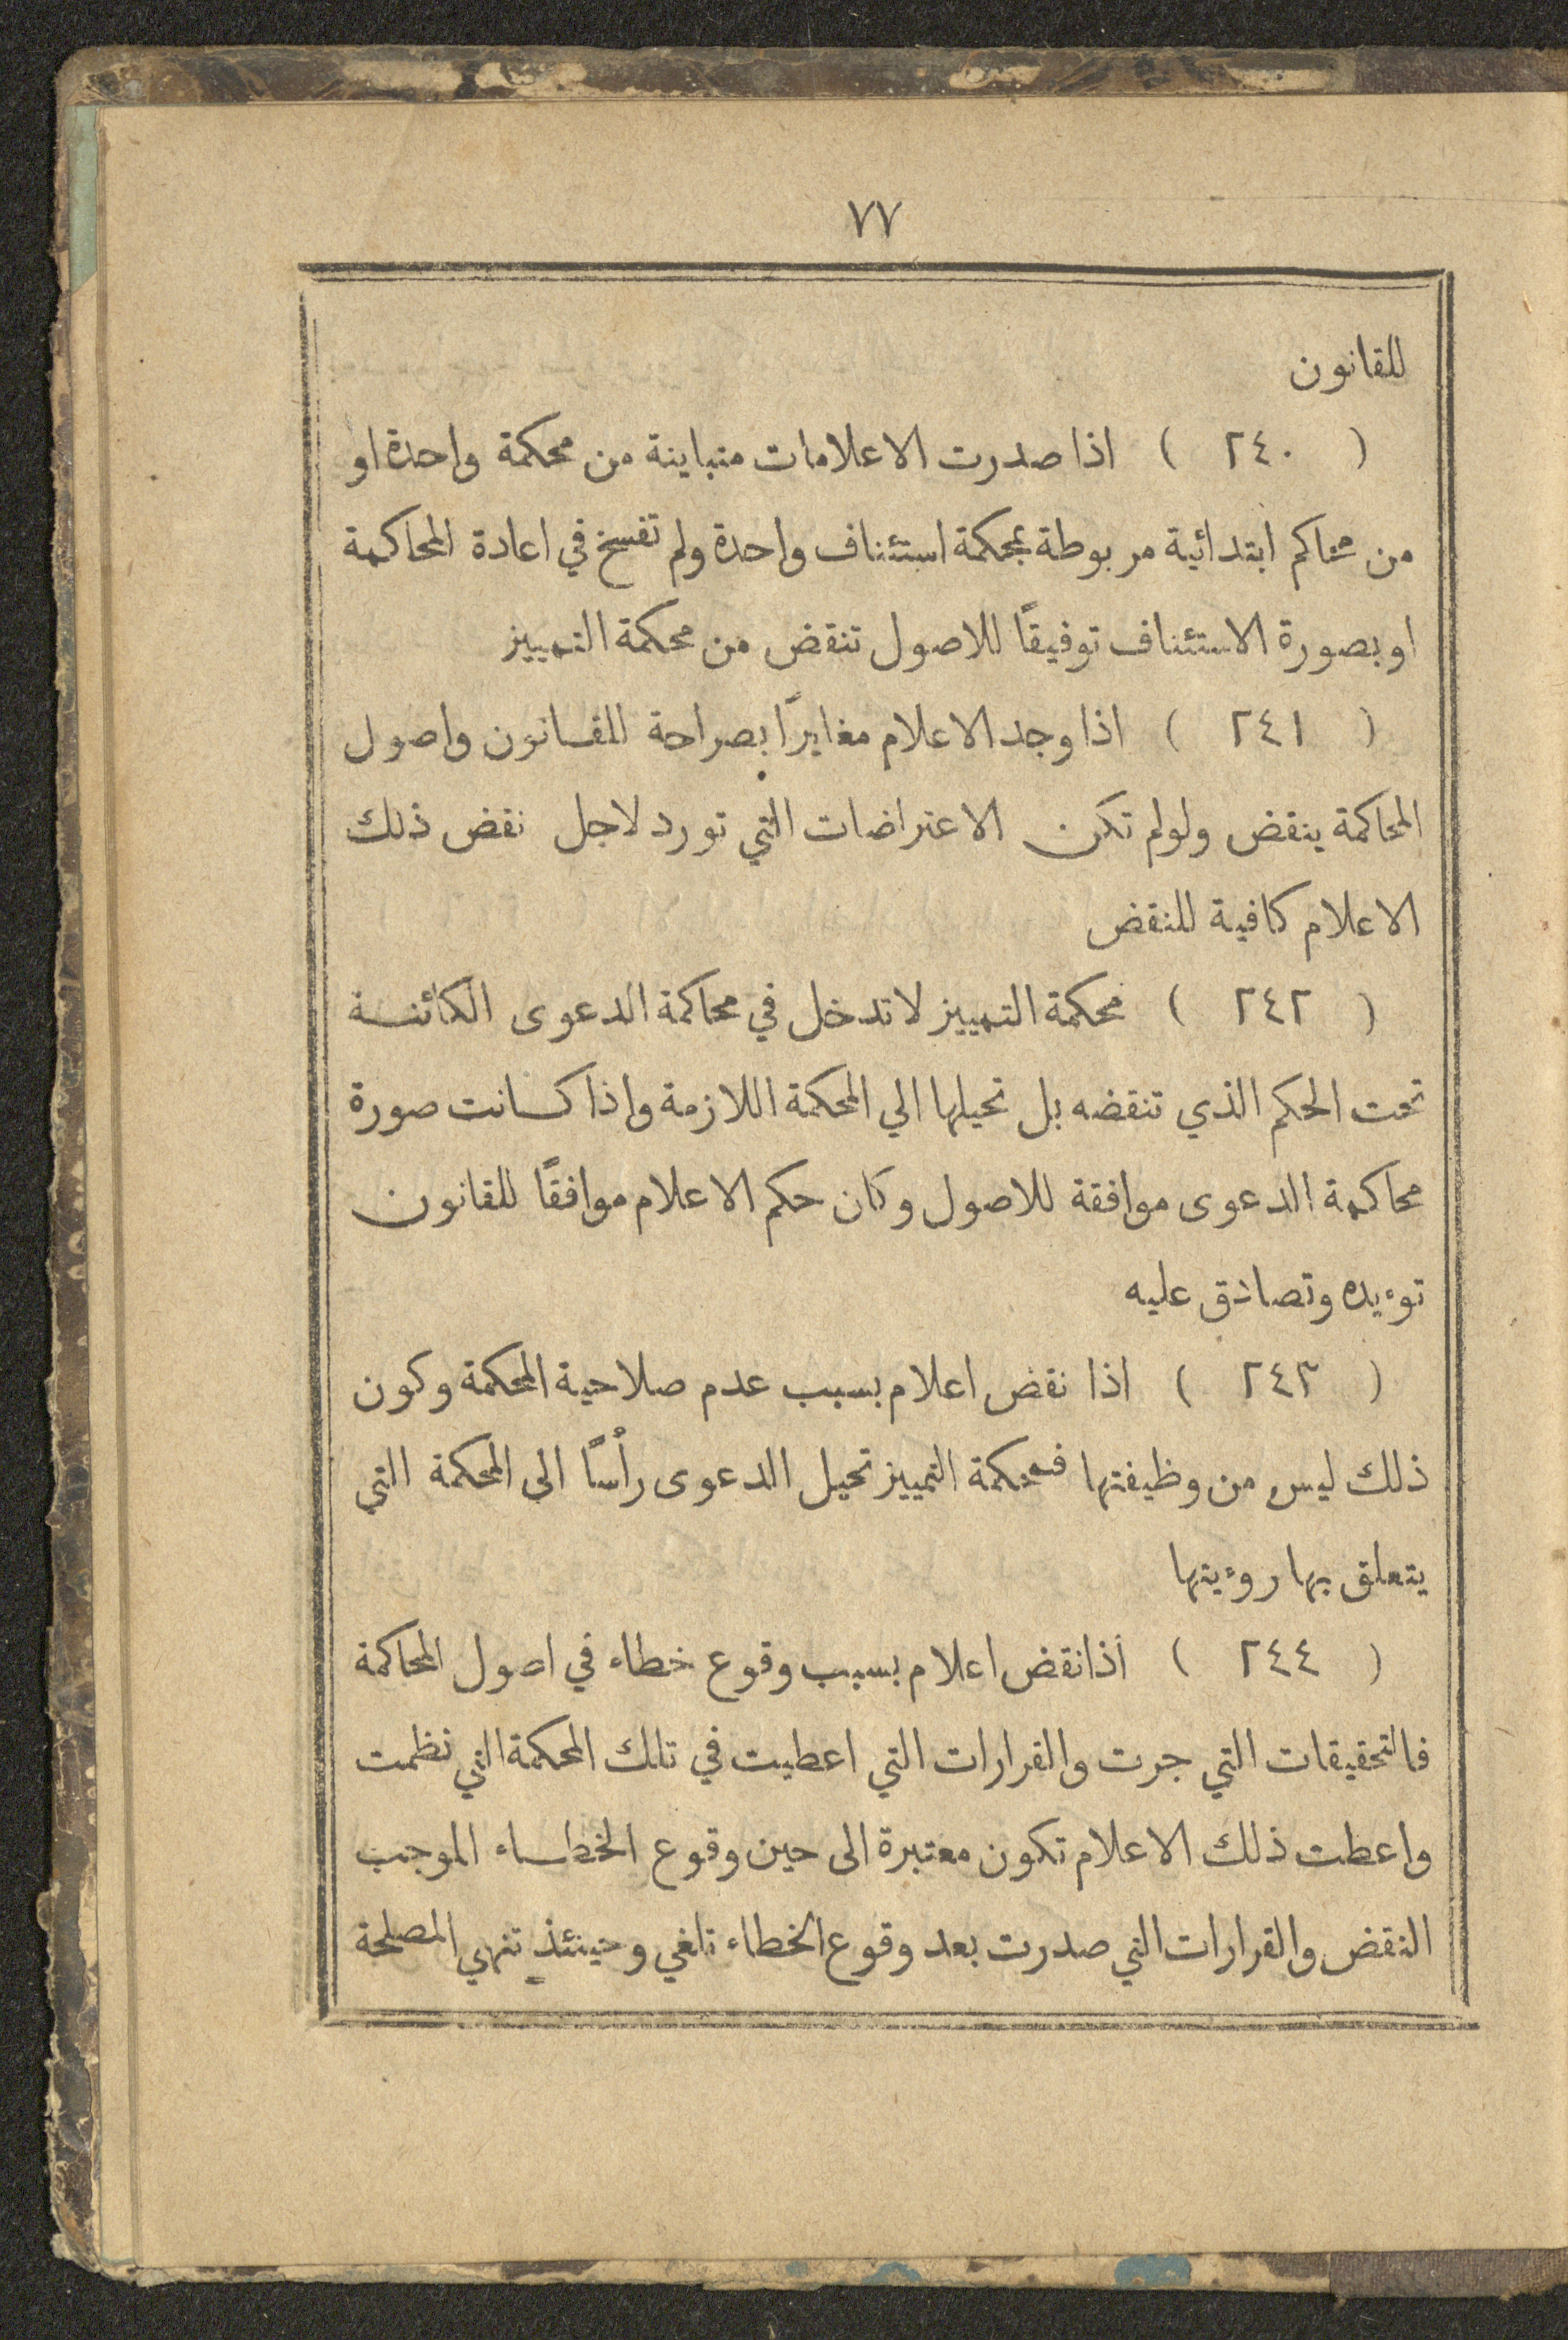 ٧٧
للقانون
( ٢٤٠ ) اذا صدرت الاعلامات متباينة من محكمة واحدة او
من محاكم ابتدائية مربوطة بمحكمة استئناف واحدة ولم تفسخ في اعادة المحاكمة
او بصورة الاستئناف توفيقًا للاصول تنقض من محكمة التمييز
( ٢٤١ ) اذا وجد الاعلام مغايرًا بصراحة للقانون واصول
المحاكمة ينقض ولولم تكن الاعتراضات التي تورد لاجل نقض ذلك
الاعلام كافية للنقض
( ٢٤٢ ) محكمة التمييز لا تدخل في محاكمة الدعوى الكائنة
تحت الحكم الذي تنقضه بل تحيلها الي المحكمة اللازمة واذا كانت صورة
محاكمة الدعوى موافقة للاصول وكان حكم الاعلام موافقًا للقانون
توءيده وتصادق عليه
( ٢٤٣ ) اذا نقض اعلام بسبب عدم صلاحية المحكمة وكون
ذلك ليس من وظيفتها فمحكمة التمييز تحيل الدعوى رأسًا الى المحكمة التي
يتعلق بها روءيتها
( ٢٤٤ ) اذا نقض اعلام بسبب وقوع خطاء في اصول المحاكمة
فالتحقيقات التي جرت والقرارات التي اعطيت في تلك المحكمة التي نظمت
واعطت ذلك الاعلام تكون معتبرة الى حين وقوع الخطاء الموجب
النقض والقرارات التي صدرت بعد وقوع الخطاء تلغي وحينئذٍ تنهي المصلحة